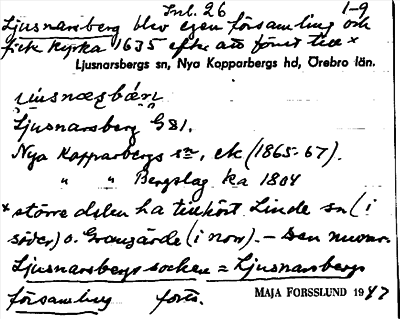 Inl. 26 1-9
Ljusnarsberg blev egen församling och
fick kyrka 1635 efter att förut till x
Ljusnarsbergs sn, Nya Kopparbergs hd, Örebro län.
Ljusnarsberg GS1.
Nya Kopparbergs sn, ek (1865-67).
" " Bergslag ka 1804
x större delen ha tillhört Linde sn (i
söder) o. Grangärde (i norr). – Den
Ljusnarsbergs socken = Ljusnarsbergs
församling forts.
MAJA FORSSLUND 1947